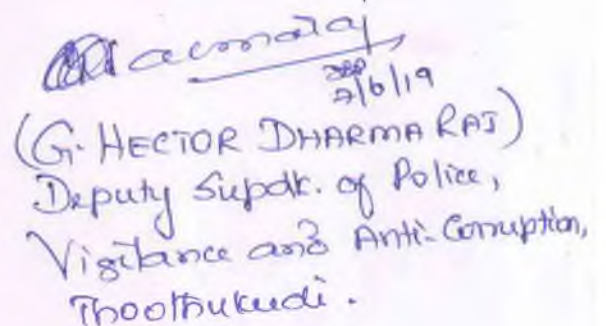 DSP
7/6/19
(G. HECTOR DHARMA RAJ)
Deputy Supdt. of Police,
Vigilance and Anti-Corruption,
Thoothukudi.